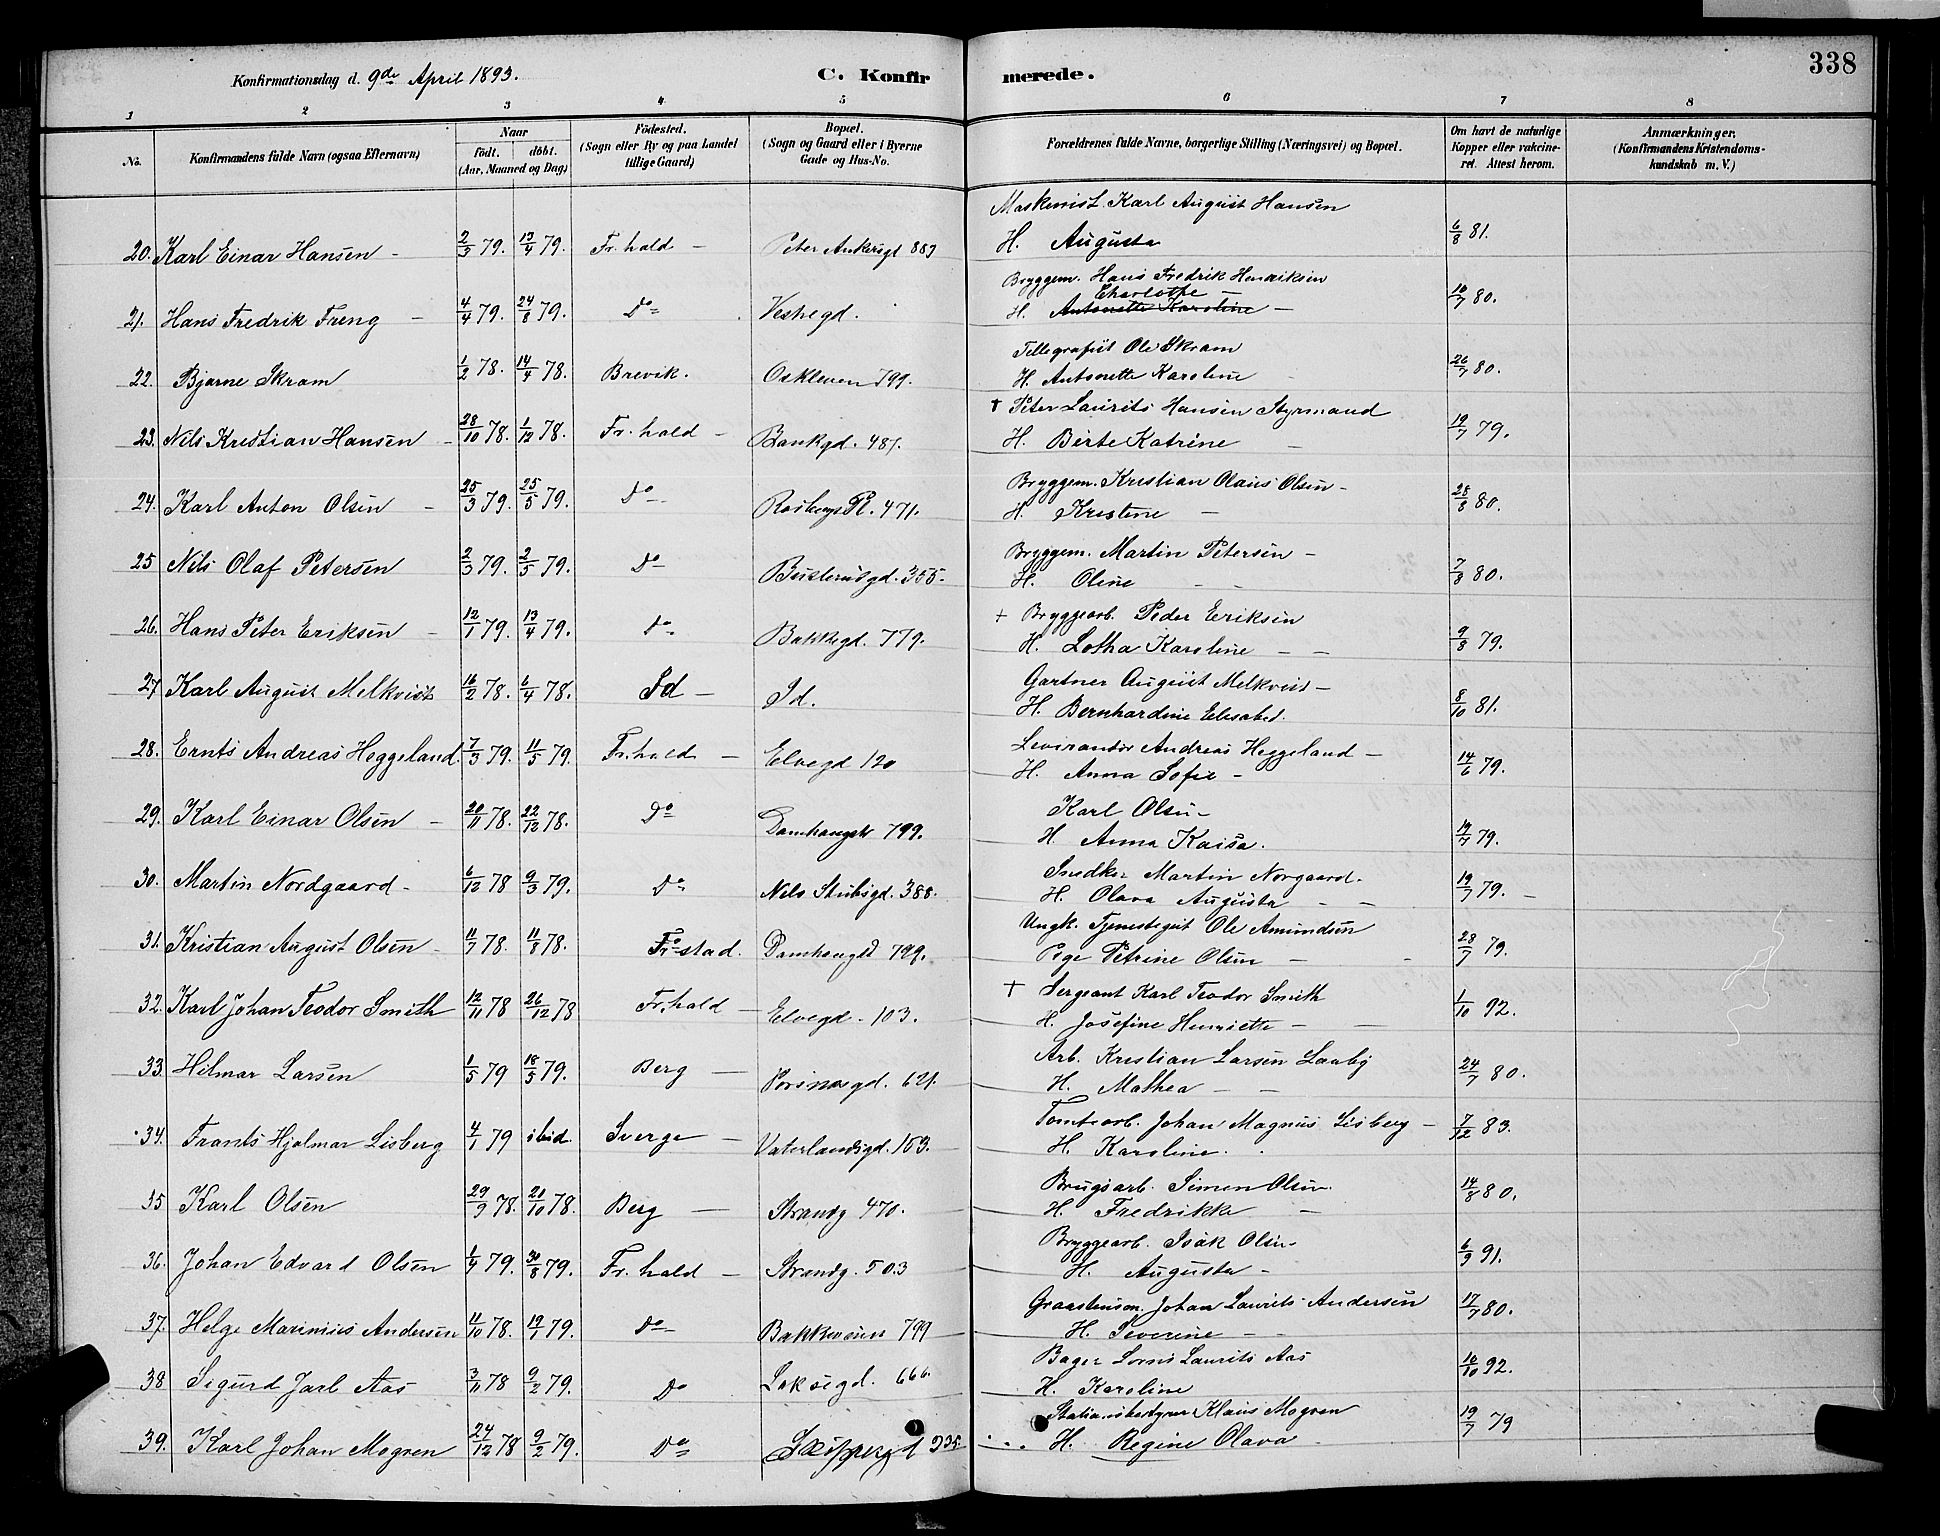 338
Konfirmationsdag d. 9de April 1893. C. Konfir merede.
1 2 3 4 5 6 7 8
No. Konfirmandens fulde Navn (ogsaa Efternavn) Naar født. døbt. (Aar, Maaned og Dag) Fødested. (Sogn eller By og paa Landet tillige Gaard) Bopæl. (Sogn og Gaard eller i Byerne Gade og Hus-No. Forældrenes fulde Navne, borgerlige Stilling (Næringsvei) og Bopæl. Om havt de naturlige Kopper eller vakcineret. Attest herom. Anmærkninger. (Konfirmandens Kristendomskundskab m. V.)
Maskinist Karl August Hansen
20. Karl Einar Hansen - 2/3 79. 13/4 79. Fr.hald - Peter Ankersgt 883 H. Augusta 6/8 81.
Bryggem. Hans Fredrik Henriksen
Charlotte -
21. Hans Fredrik Freng - 4/4 79. 24/8 79. Do Vestregd. H. Antonette Karoline - 10/7 80.
Tellegrafist Ole Skram
22. Bjarne Skram 1/2 78. 14/4 78. Brevik. Oskleven 799. H. Antonette Karoline 26/7 80.
† Peter Laurits Hansen Styrmand
23. Nils Kristian Hansen - 28/10 78. 1/12 78. Fr.hald - Bankgd. 487. H. Birte Katrine - 19/7 79.
Bryggem. Kristian Olaus Olsen -
24. Karl Anton Olsen - 25/3 79. 25/5 79. Do Rosbergs Pl. 471. H. Kristine - 28/8 80.
Bryggem. Martin Petersen -
25 Nils Olaf Petersen 2/3 79. 2/5 79. Do Busterudgd. 355. H. Oline - - 7/8 80.
+ Bryggearb. Peder Eriksen
26. Hans Peter Eriksen - 12/1 79. 13/4 79. Do Bakkegd. 779. H. Lotha Karoline - - 9/8 79.
Gartner August Melkvist -
27 Karl August Melkvist 16/2 78. 6/4 78. Id - Id. H. Bernhardine Elisabet. 8/10 81.
Leverandør Andreas Heggeland -
28. Ernts Andreas Heggeland. 7/3 79. 11/5 79. Fr.hald - Elvegd 120 H. Anna Sofie - 14/6 79.
Karl Olsen -
29. Karl Einar Olsen - 20/11 78. 22/12 78. Do Damhaugst 799. H. Anna Kaisa. 19/7 79.
Snedker Martin Norgaard.
30. Martin Nordgaard - 6/12 78 9/3 79. Do Nils Stubsgd. 388. H. Olava Augusta - - 19/7 79. -
Ungk. Tjenestegut Ole Amundsen
31. Kristian August Olsen - 11/7 78. 11/8 78. Fr.stad. Damhaugst 799. Pige Petrine Olsen - 28/7 79.
† Sergeant Karl Teodor Smith
32. Karl Johan Teodor Smith 12/11 78 26/12 78 Fr.hald - Elvegd - 103. H. Josefine Henriette - - 1/10 92.
Arb. Kristian Larsen Laaby
33. Hilmar Larsen 1/5 79 18/5 79. Berg - Vorinosgd. 621. H. Mathea - - 24/7 80.
Tomtearb. Johan Magnus Lisberg -
34. Frants Hjalmar Lisberg 4/1 79 ibid. Sverge - Vaterlandsgd. 153. H. Karoline. 7/12 83.
Brugsarb. Simen Olsen.
35 Karl Olsen 29/9 78. 20/10 78. Berg - Strandg 470. H. Fredrikke - 14/8 80.
Bryggearb. Isak Olsen.
36. Johan Edvard Olsen 1/4 79. 30/8 79. Fr.hald - Strandg. 503 H. Augusta - 6/9 91.
Graastensm. Johan Laurits Andersen
37. Helge Marinius Andersen 11/10 78. 19/1 79. Do Bakkeveien 799 H. Severine - - 17/7 80.
Bager Laurits Aas
38 Sigurd Jarl Aas 3/11 78 9/2 79. Do Laksegd. 666. H. Karoline 10/10 92.
Stationsbestyrer Klaus Mogren
39. Karl Johan Mogren 24/12 78 9/2 79. Do Skippergd 235 H. Regine Olava 19/7 79